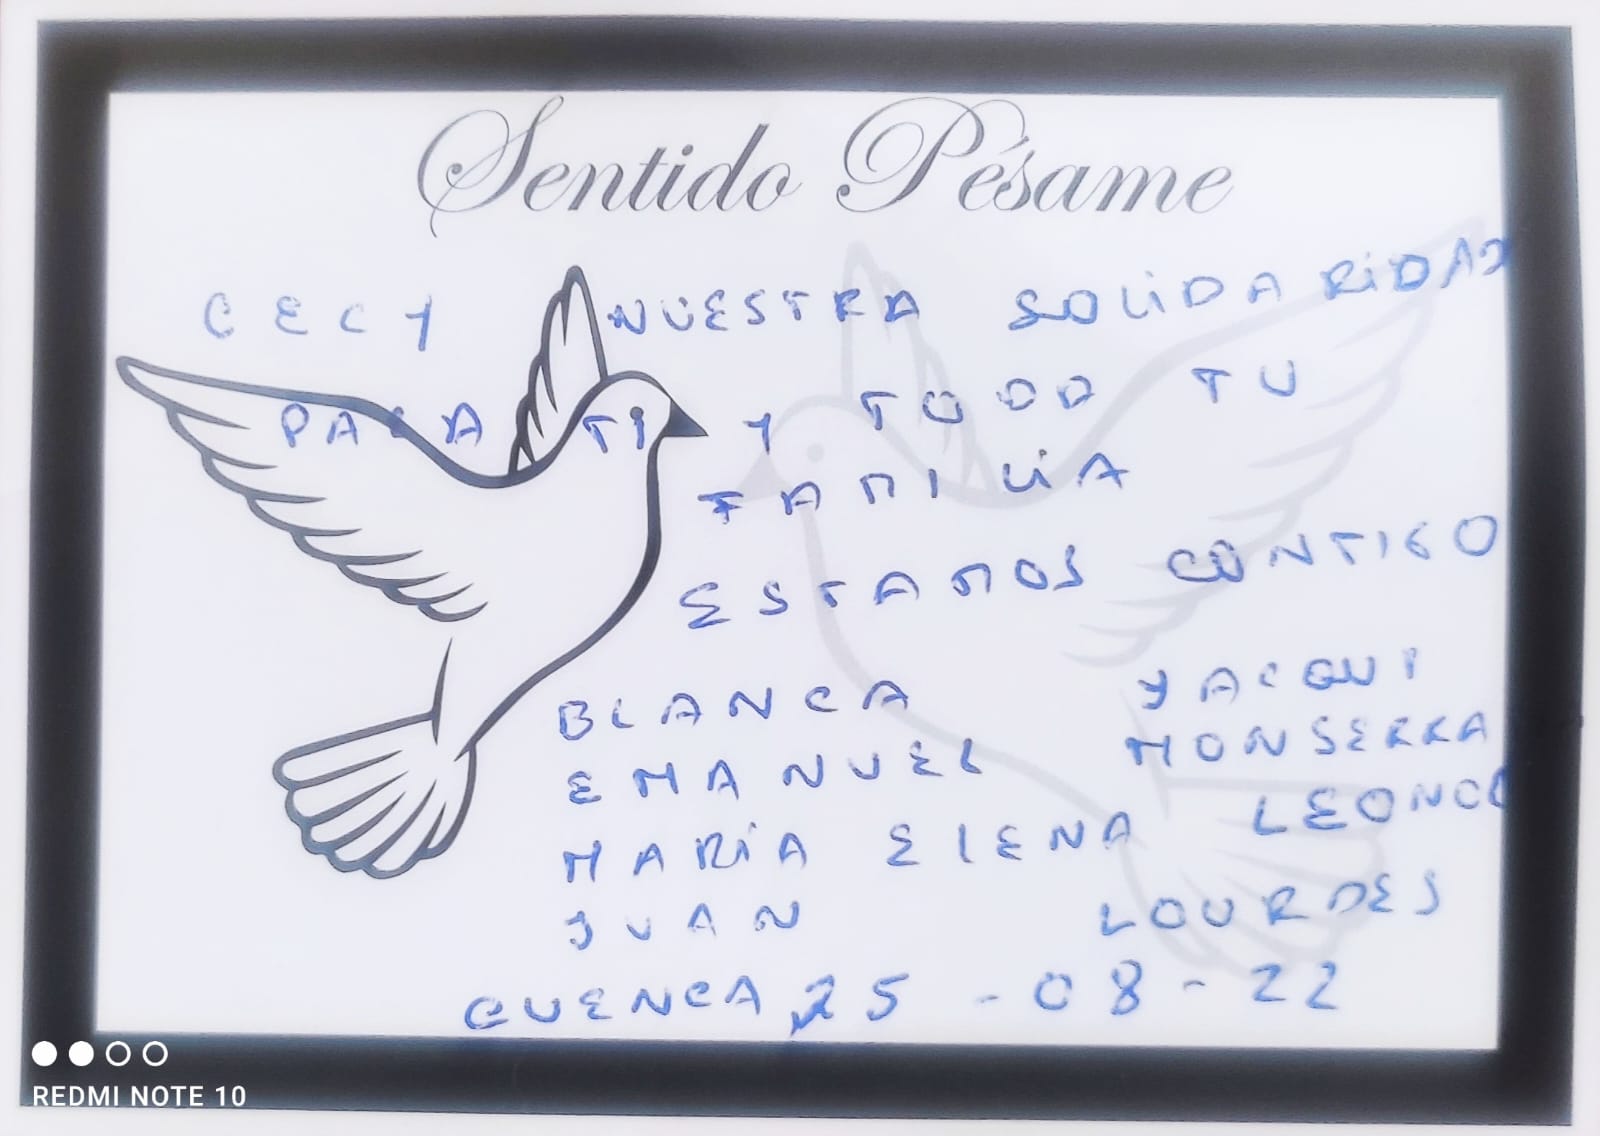 Sentido Pésame
CECY NUESTRA SOLIDARIDAD
PARA TI Y TODA TU
FAMILIA
ESTAMOS CONTIGO
BLANCA YACQUI
EMANUEL MONSERRA
MARÍA ELENA LEONCO
JUAN LOURDES
CUENCA 25-08-22
REDMI NOTE 10